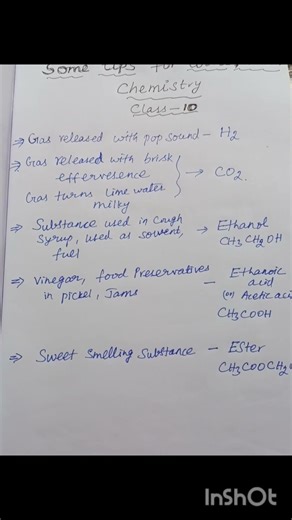 Some tips for
Chemistry
Class - 10
⇒ Gas released with pop sound - H₂
⇒ Gas released with brisk
effervesence
Gas turns lime water
milky
→ CO₂.
⇒ Substance used in Cough
Syrup, used as solvent,
fuel
→ Ethanol
CH₃CH₂OH
⇒ Vinegar, food Preservatives
in pickel, Jams
- Ethanoic
acid
(or) Acetic acid
CH₃COOH
⇒ Sweet Smelling Substance - Ester
CH₃COOCH₂
InShOt